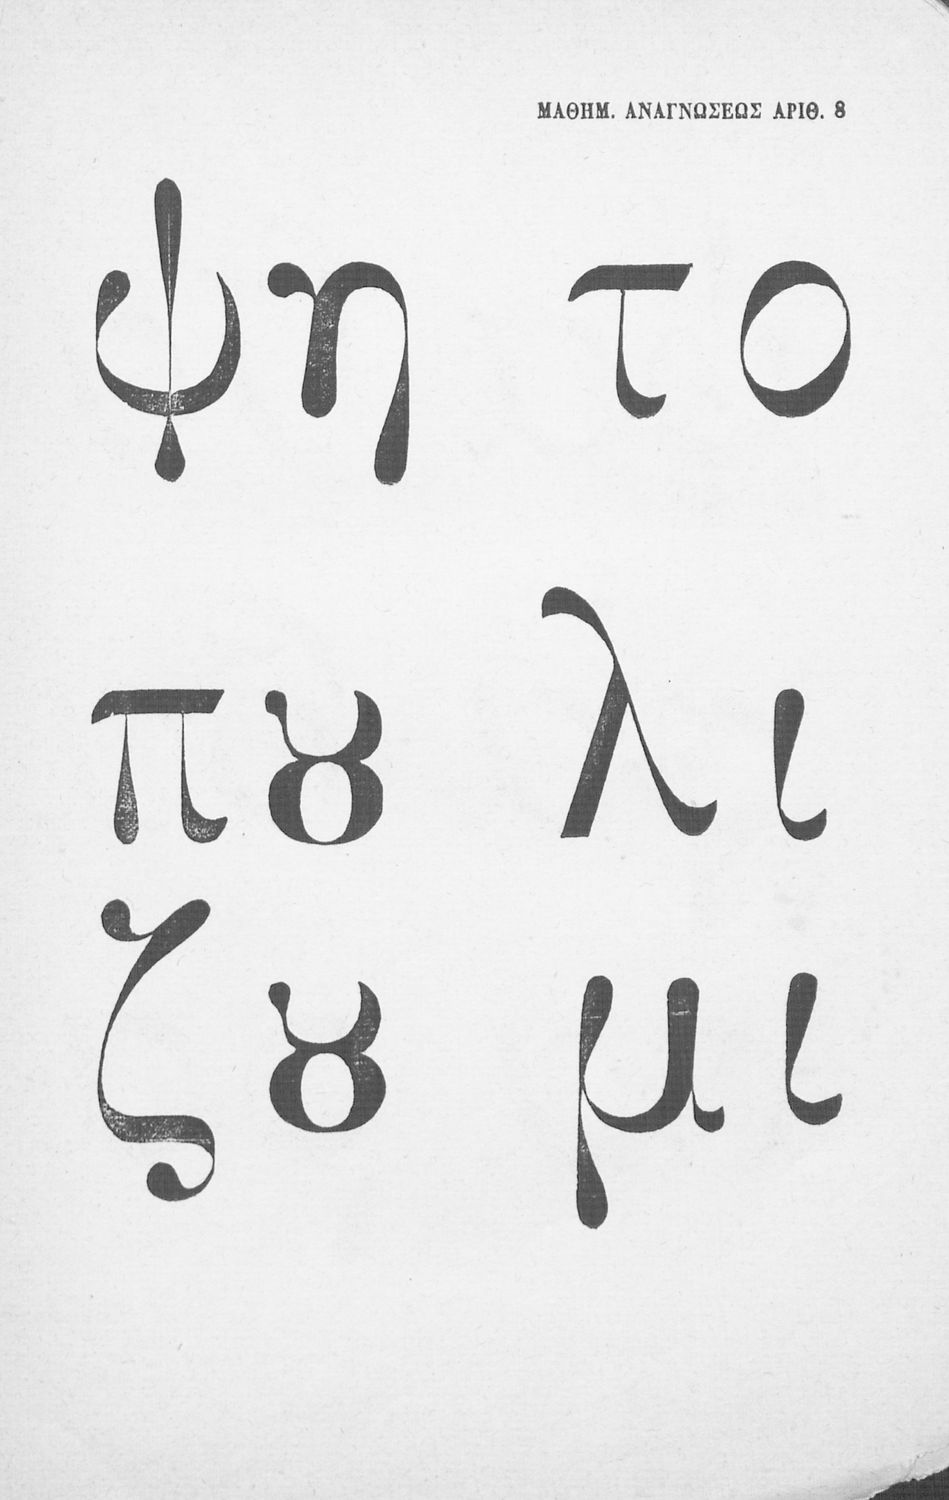 ΜΑΘΗΜ. ΑΝΑΓΝΩΣΕΩΣ ΑΡΙΘ. 8
ψη το
πȣ λι
ζȣ μι